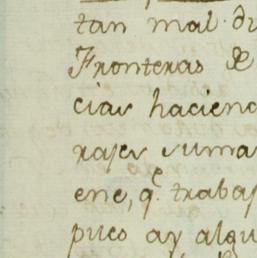 tan mal di
Fronteras de
cias haciend
rajes suma
ene, q.e trabaj
pues ay algu